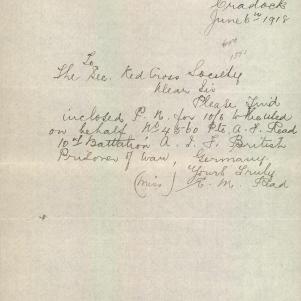 Cradock
June 6th 1918
To
The Sec. Red Cross Society
Dear Sir
Please find
inclosed P. N. for 10/6 to be used
on behalf No 4860 Pte A. J. Read
10th Battalion A. I. F. British
Prisoner of War, Germany
Yours Truly
(Miss) E. M. Read